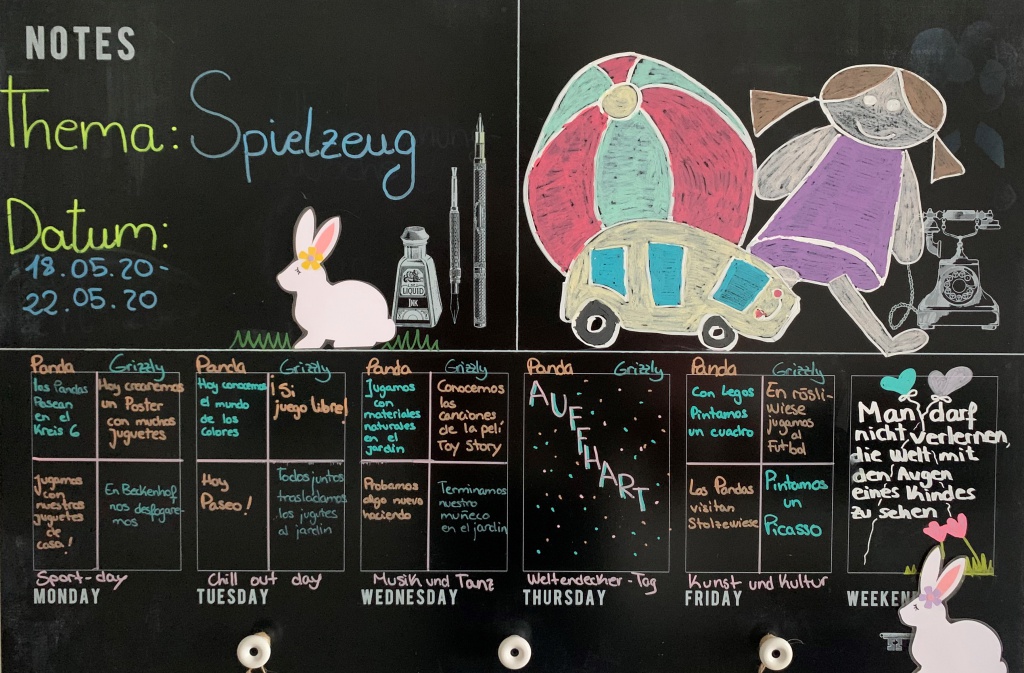 NOTES
Thema: Spielzeug
Datum:
18.05.20-
22.05.20
LIQUID
INK
Panda
Grizzly
los Pandas
Pasean
en el
Kreis 6
Hoy crearemos
un Poster
con muchos
juguetes
Jugamos
con
nuestros
juguetes
de
casa!
En Beckenhof
nos desfogare-
mos
Sport-day
MONDAY
Panda
Grizzly
Hoy conocemos
el mundo
de los
colores
¡Si
juego libre!
Hoy
Paseo!
Todos juntos
trasladamos
los jugetes
al jardin
Chill out day
TUESDAY
Panda
Grizzly
Jugamos
con
materiales
naturales
en el
jardin
Conocemos
las
canciones
de la peli
Toy Story
Probamos
algo nuevo
haciendo
Terminamos
nuestro
muñeco
en el jardin
Musik und Tanz
WEDNESDAY
Panda
Grizzly
AUFFHART
Weltendecker-Tag
THURSDAY
Panda
Grizzly
Con Legos
Pintamos
un cuadro
En rösli-
wiese
jugamos
al
Futbol
Las Pandas
visitan
Stolzewiese
Pintamos
un
Picasso
Kunst und Kultur
FRIDAY
Man darf
nicht verlernen,
die Welt mit
den Augen
eines Kindes
zu sehen